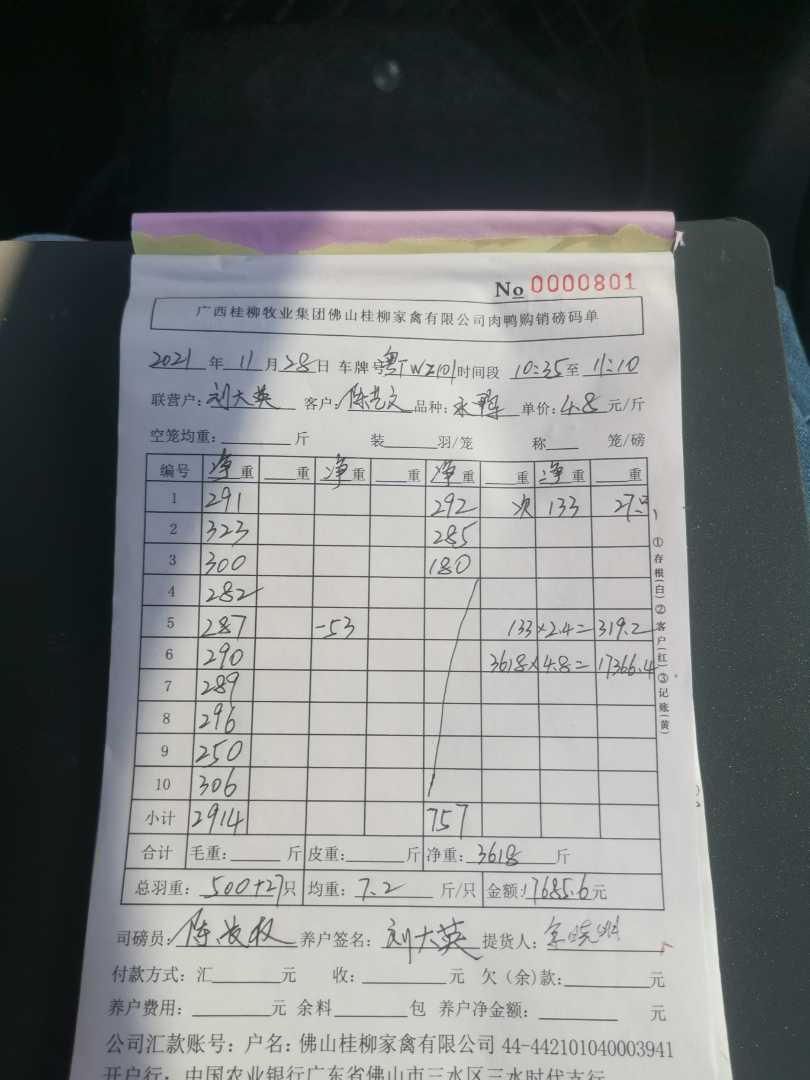 No 0000801
广西桂柳牧业集团佛山桂柳家禽有限公司肉鸭购销磅码单
2021年11月28日 车牌号粤TWZ101时间段 10:35至11:10
联营户:刘大英 客户: 品种:水鸭 单价:4.8元/斤
空笼均重:斤 装羽/笼 称笼/磅
编号 净重 重 净重 重 净重 重 净重 重
1 291 292 次 133 27只
2 323 285
3 300 180
4 282
5 287 -53 133×2.4=319.2
6 290 3618×4.8=17366.4
7 289
8 296
9 250
10 306
小计 2914 757
合计 毛重:斤 皮重:斤 净重:3618斤
总羽重:500+27只 均重:7.2斤/只 金额:17685.6元
司磅员: 养户签名:刘大英 提货人:
付款方式:汇元 收:元 欠(余)款:元
养户费用:元 余料包 养户净金额:元
公司汇款账号:户名:佛山桂柳家禽有限公司 44-442101040003941
开户行:中国农业银行广东省佛山市三水区三水时代支行
①存根(白)②客户(红)③记账(黄)